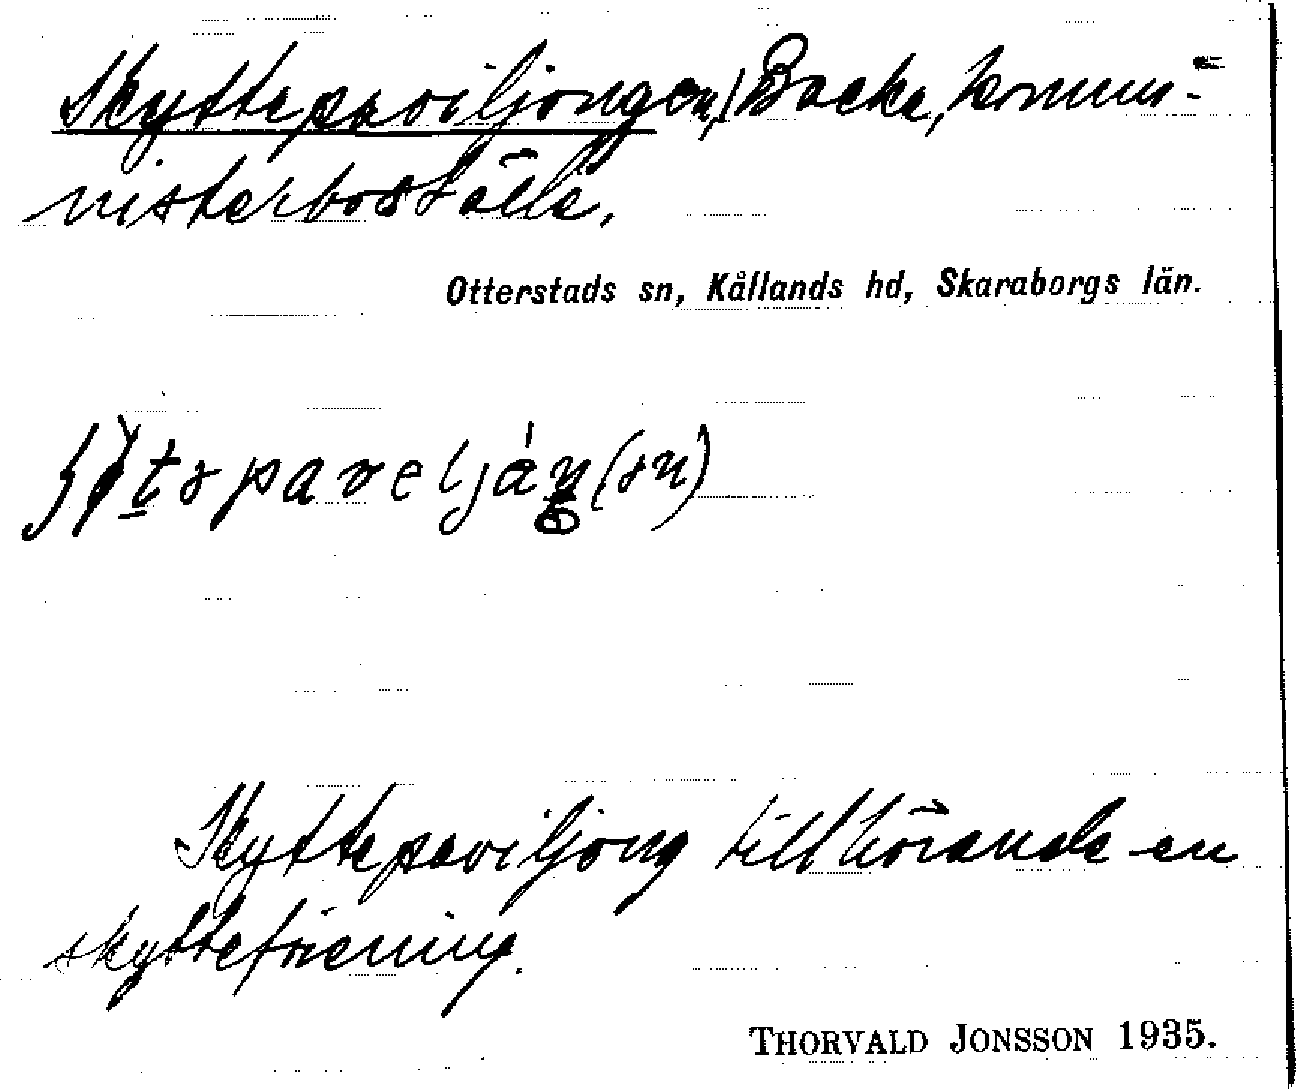 Skyttepaviljongen, Backa, kommi-
nisterboställe.
Otterstads sn, Kållands hd, Skaraborgs län.
Skyttepaviljong tillhörande en
skytteförening.
THORVALD JONSSON 1935.